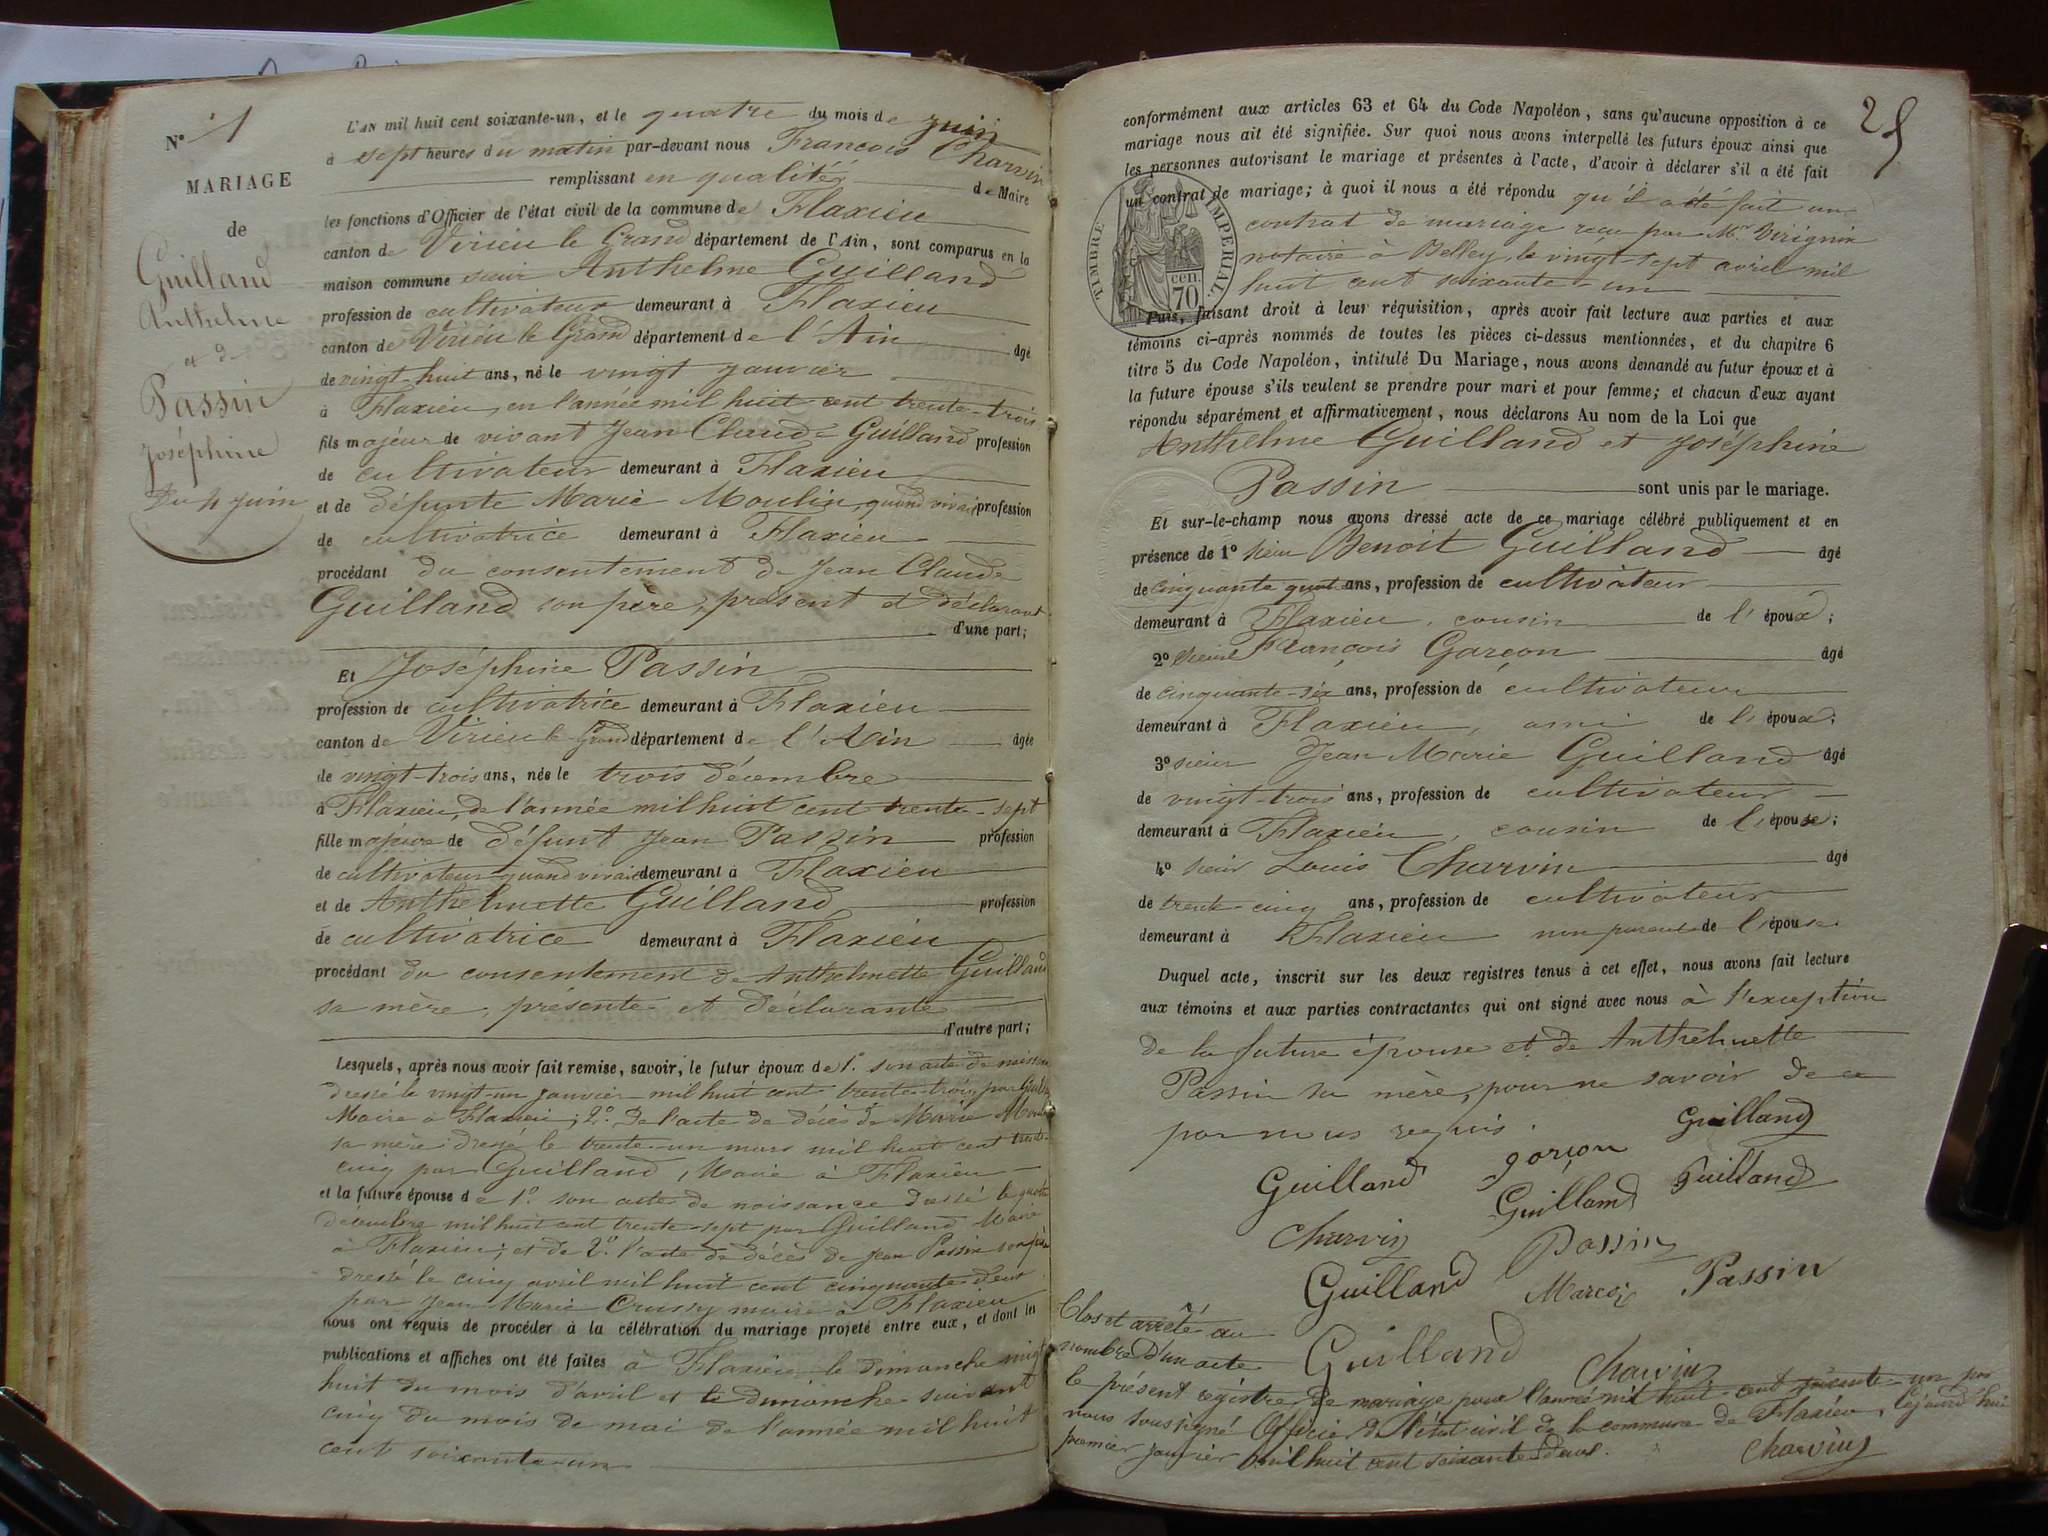 N.° 1
MARIAGE
de
Guilland
Anthelme
et de
Passin
Joséphine
Du 4 Juin
L'AN mil huit cent soixante-un, et le quatre du mois de Juin
à sept heures du matin par-devant nous François Charvin
remplissant en qualité de Maire
les fonctions d'Officier de l'état civil de la commune de Flaxieu
canton de Virieu le Grand département de l'Ain, sont comparus en la
maison commune sieur Anthelme Guilland
profession de cultivateur demeurant à Flaxieu
canton de Virieu le Grand département de l'Ain âgé
de vingt-huit ans, né le vingt janvier
à Flaxieu, en l'année mil huit cent trente-trois
fils majeur de vivant Jean Claude Guilland profession
de cultivateur demeurant à Flaxieu
et de défunte Marie Moulin, quand vivait profession
de cultivatrice demeurant à Flaxieu
procédant du consentement de Jean Claude
Guilland son père, présent et déclarant
d'une part;
Et Joséphine Passin
profession de cultivatrice demeurant à Flaxieu
canton de Virieu le Grand département de l'Ain âgée
de vingt-trois ans, née le trois décembre
à Flaxieu, de l'année mil huit cent trente-sept
fille majeure de défunt Jean Passin profession
de cultivateur quand vivait demeurant à Flaxieu
et de Anthelmette Guilland profession
de cultivatrice demeurant à Flaxieu
procédant du consentement de Anthelmette Guilland
sa mère, présente et déclarante
d'autre part;
Lesquels, après nous avoir fait remise, savoir, le futur époux de 1.° son acte de naissance
dressé le vingt-un janvier mil huit cent trente-trois par Guilland
Maire à Flaxieu; 2.° de l'acte de décès de Marie Moulin
sa mère dressé le trente-un mars mil huit cent trente-
cinq par Guilland, Maire à Flaxieu
et la future épouse de 1.° son acte de naissance dressé le quatre
décembre mil huit cent trente-sept par Guilland Maire
à Flaxieu; et de 2.° l'acte de décès de Jean Passin son père
dressé le cinq avril mil huit cent cinquante-deux
par Jean Marie maire à Flaxieu
nous ont requis de procéder à la célébration du mariage projeté entre eux, et dont les
publications et affiches ont été faites à Flaxieu le dimanche vingt
huit du mois d'avril et le dimanche suivant
cinq du mois de mai de l'année mil huit
cent soixante-un
25
conformément aux articles 63 et 64 du Code Napoléon, sans qu'aucune opposition à ce
mariage nous ait été signifiée. Sur quoi nous avons interpellé les futurs époux ainsi que
les personnes autorisant le mariage et présentes à l'acte, d'avoir à déclarer s'il a été fait
un contrat de mariage; à quoi il nous a été répondu qu'il a été fait un
contrat de mariage reçu par Mr. Virignin
notaire à Belley, le vingt-sept avril mil
huit cent soixante-un
TIMBRE IMPERIAL.
cen.
70
Puis, faisant droit à leur réquisition, après avoir fait lecture aux parties et aux
témoins ci-après nommés de toutes les pièces ci-dessus mentionnées, et du chapitre 6
titre 5 du Code Napoléon, intitulé Du Mariage, nous avons demandé au futur époux et à
la future épouse s'ils veulent se prendre pour mari et pour femme; et chacun d'eux ayant
répondu séparément et affirmativement, nous déclarons Au nom de la Loi que
Anthelme Guilland et Joséphine
Passin sont unis par le mariage.
Et sur-le-champ nous avons dressé acte de ce mariage célébré publiquement et en
présence de 1° sieur Benoit Guilland âgé
de cinquante quatre ans, profession de cultivateur
demeurant à Flaxieu, cousin de l'époux;
2° sieur François Garçon âgé
de cinquante-six ans, profession de cultivateur
demeurant à Flaxieu, ami de l'époux;
3° sieur Jean Marie Guilland âgé
de vingt-trois ans, profession de cultivateur
demeurant à Flaxieu, cousin de l'épouse;
4° sieur Louis Charvin âgé
de trente-cinq ans, profession de cultivateur
demeurant à Flaxieu non parent de l'épouse.
Duquel acte, inscrit sur les deux registres tenus à cet effet, nous avons fait lecture
aux témoins et aux parties contractantes qui ont signé avec nous à l'exception
de la future épouse et de Anthelmette
Passin sa mère, pour ne savoir de ce
par nous requis.
Guilland garçon Guilland
Guilland Guilland
Charvin Passin
Guilland Passin
Guilland Charvin
Clos et arrêté au
nombre d'un acte
le présent registre de mariage pour l'année mil huit cent soixante-un par
nous soussigné Officier de l'état civil de la commune de Flaxieu, cejourd'hui
premier janvier mil huit cent soixante-deux.
Charvin